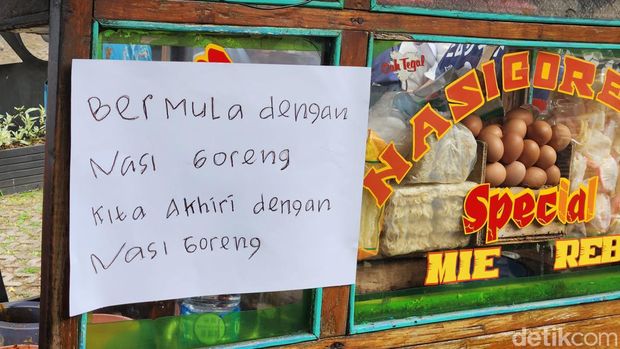 Bermula dengan
Nasi Goreng
Kita Akhiri dengan
Nasi Goreng
Cah Tegal
NASIGORE
Special
MIE REB
detikcom